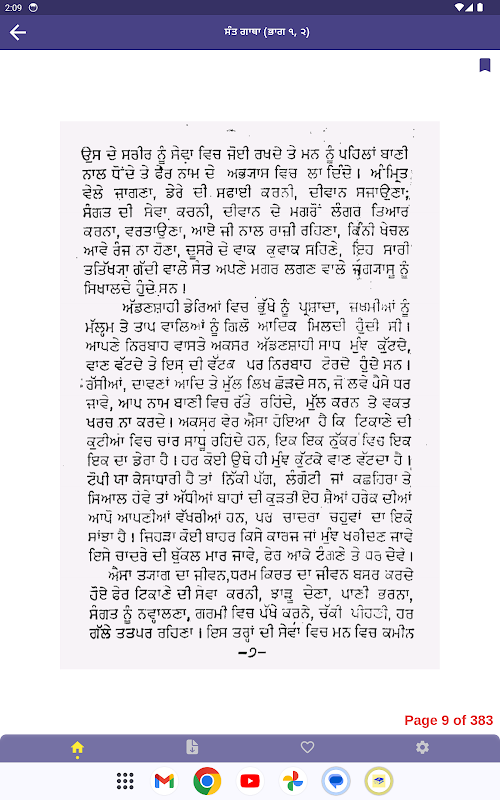 2:09
ਸੰਤ ਗਾਥਾ (ਭਾਗ ੧, ੨)
ਉਸ ਦੇ ਸਰੀਰ ਨੂੰ ਸੇਵਾ ਵਿਚ ਜੋਈ ਰਖਦੇ ਤੇ ਮਨ ਨੂੰ ਪਹਿਲਾਂ ਬਾਣੀ
ਨਾਲ ਧੋਂਦੇ ਤੇ ਫੇਰ ਨਾਮ ਦੇ ਅਭਯਾਸ ਵਿਚ ਲਾ ਦਿੰਦੇ। ਅੰਮ੍ਰਿਤ
ਵੇਲੇ ਜਾਗਣਾ, ਡੇਰੇ ਦੀ ਸਫਾਈ ਕਰਨੀ, ਦੀਵਾਨ ਸਜਾਉਣਾ;
ਸੰਗਤ ਦੀ ਸੇਵਾ ਕਰਨੀ, ਦੀਵਾਨ ਦੇ ਮਗਰੋਂ ਲੰਗਰ ਤਿਆਰ
ਕਰਨਾ, ਵਰਤਾਉਣਾ, ਆਏ ਜੀ ਨਾਲ ਰਾਜ਼ੀ ਰਹਿਣਾ, ਕਿੰਨੀ ਖੇਚਲ
ਆਵੇ ਰੰਜ ਨਾ ਹੋਣਾ, ਦੂਸਰੇ ਦੇ ਵਾਕ ਕੁਵਾਕ ਸਹਿਣੇ, ਇਹ ਸਾਰੀ
ਤਤਿੱਖ੍ਯਾ ਗੱਦੀ ਵਾਲੇ ਸੰਤ ਅਪਣੇ ਮਗਰ ਲਗਣ ਵਾਲੇ ਜੱਗ੍ਯਾਸੂ ਨੂੰ
ਸਿਖਾਲਦੇ ਹੁੰਦੇ ਸਨ।
ਅੱਡਣਸ਼ਾਹੀ ਡੇਰਿਆਂ ਵਿਚ ਭੁੱਖੇ ਨੂੰ ਪ੍ਰਸ਼ਾਦਾ, ਜ਼ਖਮੀਆਂ ਨੂੰ
ਮੱਲ੍ਹਮ ਤੇ ਤਾਪ ਵਾਲਿਆਂ ਨੂੰ ਗਿਲੋ ਆਦਿਕ ਮਿਲਦੀ ਹੁੰਦੀ ਸੀ।
ਆਪਣੇ ਨਿਰਬਾਹ ਵਾਸਤੇ ਅਕਸਰ ਅੱਡਣਸ਼ਾਹੀ ਸਾਧ ਮੁੰਞ ਕੁੱਟਦੇ,
ਵਾਣ ਵੱਟਦੇ ਤੇ ਇਸ ਦੀ ਵੱਟਕ ਪਰ ਨਿਰਬਾਹ ਟੋਰਦੇ ਹੁੰਦੇ ਸਨ।
ਰੱਸੀਆਂ, ਦਾਵਣਾਂ ਆਦਿ ਤੇ ਮੁੱਲ ਲਿਖ ਛੋੜਦੇ ਸਨ, ਜੋ ਲਵੇ ਪੈਸੇ ਧਰ
ਜਾਵੇ, ਆਪ ਨਾਮ ਬਾਣੀ ਵਿਚ ਰੱਤੇ ਰਹਿੰਦੇ, ਮੁੱਲ ਕਰਨ ਤੇ ਵਕਤ
ਖਰਚ ਨਾ ਕਰਦੇ। ਅਕਸਰ ਵੇਰ ਐਸਾ ਹੋਇਆ ਹੈ ਕਿ ਟਿਕਾਣੇ ਦੀ
ਕੁਟੀਆ ਵਿਚ ਚਾਰ ਸਾਧੂ ਰਹਿੰਦੇ ਹਨ, ਇਕ ਇਕ ਨੁੱਕਰ ਵਿਚ ਇਕ
ਇਕ ਦਾ ਡੇਰਾ ਹੈ। ਹਰ ਕੋਈ ਉਥੇ ਹੀ ਮੁੰਞ ਕੁੱਟਕੇ ਵਾਣ ਵੱਟਦਾ ਹੈ।
ਟੋਪੀ ਯਾ ਕੇਸਾਧਾਰੀ ਹੈ ਤਾਂ ਨਿੱਕੀ ਪੱਗ, ਲੰਗੋਟੀ ਜਾਂ ਕਛਹਿਰਾ ਤੇ
ਸਿਆਲ ਹੋਵੇ ਤਾਂ ਅੱਧੀਆਂ ਬਾਹਾਂ ਦੀ ਕੁੜਤੀ ਏਹ ਸ਼ੈਆਂ ਹਰੇਕ ਦੀਆਂ
ਆਪੋ ਆਪਣੀਆਂ ਵੱਖਰੀਆਂ ਹਨ, ਪਰ ਚਾਦਰਾ ਚਹੁਵਾਂ ਦਾ ਇਕੋ
ਸਾਂਝਾ ਹੈ। ਜਿਹੜਾ ਕੋਈ ਬਾਹਰ ਕਿਸੇ ਕਾਰਜ ਜਾਂ ਮੁੰਞ ਖਰੀਦਣ ਜਾਵੇ
ਇਸੇ ਚਾਦਰੇ ਦੀ ਬੁੱਕਲ ਮਾਰ ਜਾਵੇ, ਫੇਰ ਆਕੇ ਟੰਗਣੇ ਤੇ ਧਰ ਦੇਵੇ।
ਐਸਾ ਤ੍ਯਾਗ ਦਾ ਜੀਵਨ, ਧਰਮ ਕਿਰਤ ਦਾ ਜੀਵਨ ਬਸਰ ਕਰਦੇ
ਹੋਏ ਫੇਰ ਟਿਕਾਣੇ ਦੀ ਸੇਵਾ ਕਰਨੀ, ਝਾੜੂ ਦੇਣਾ, ਪਾਣੀ ਭਰਨਾ,
ਸੰਗਤ ਨੂੰ ਨਵ੍ਹਾਲਣਾ, ਗਰਮੀ ਵਿਚ ਪੱਖੇ ਕਰਨੇ, ਚੱਕੀ ਪੀਹਣੀ, ਹਰ
ਗੱਲੇ ਤਤਪਰ ਰਹਿਣਾ। ਇਸ ਤਰ੍ਹਾਂ ਦੀ ਸੇਵਾ ਵਿਚ ਮਨ ਵਿਚ ਕਮੀਨ
-੭-
Page 9 of 383